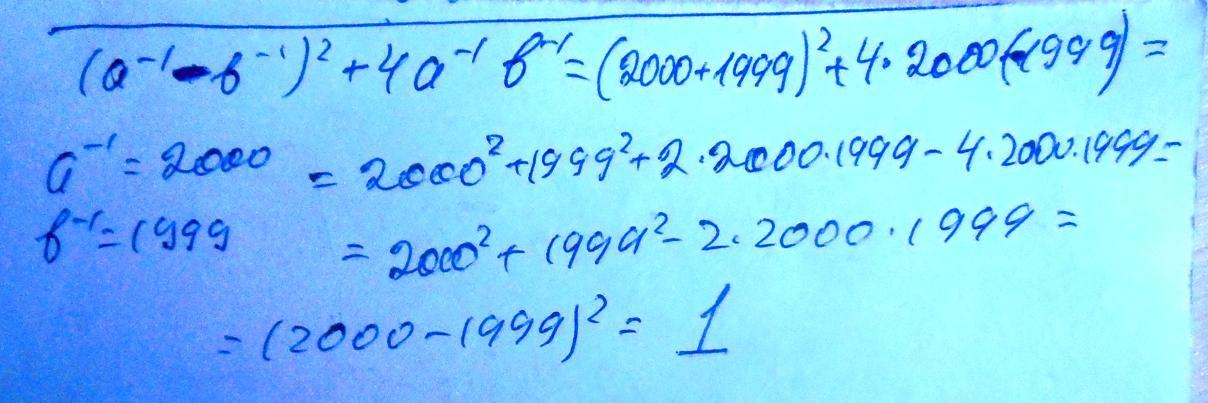 (a⁻¹-b⁻¹)²+4a⁻¹ b⁻¹=(2000+1999)²+4·2000(-1999)=
a⁻¹=2000 = 2000²+1999²+2·2000·1999-4·2000·1999=
b⁻¹=1999 = 2000²+1999²-2·2000·1999=
=(2000-1999)²= 1